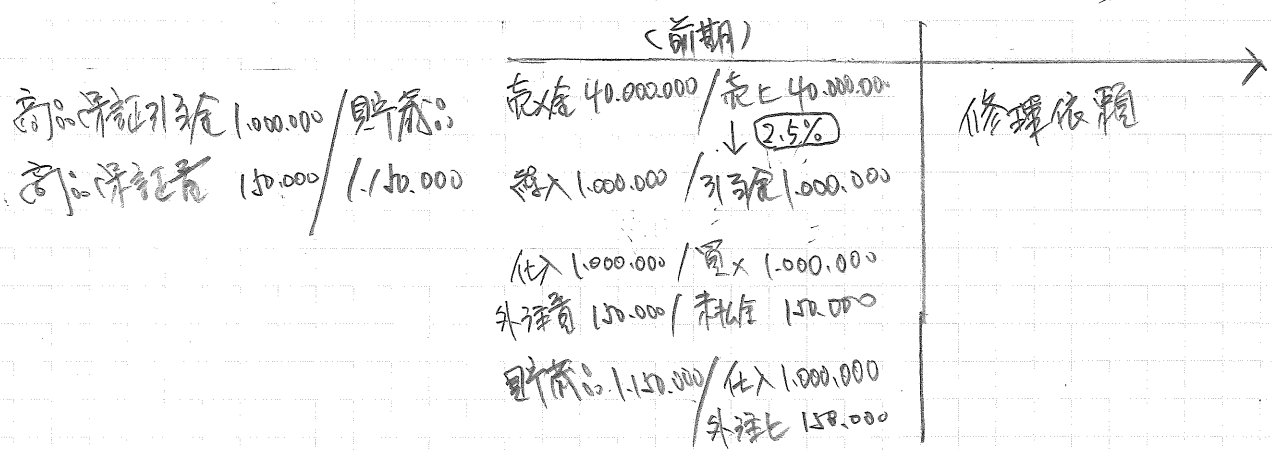 (前期)
商品保証引当金 1.000.000 / 貯蔵品
商品保証費 150.000 / 1.150.000
売×金 40.000.000 / 売上 40.000.00.
↓ 2.5%
繰入 1.000.000 / 引当金 1.000.000
仕入 1.000.000 / 買× 1.000.000
外注費 150.000 / 未払金 150.000
貯蔵品 1.150.000 / 仕入 1.000.000
外注ヒ 150.000
修理依頼